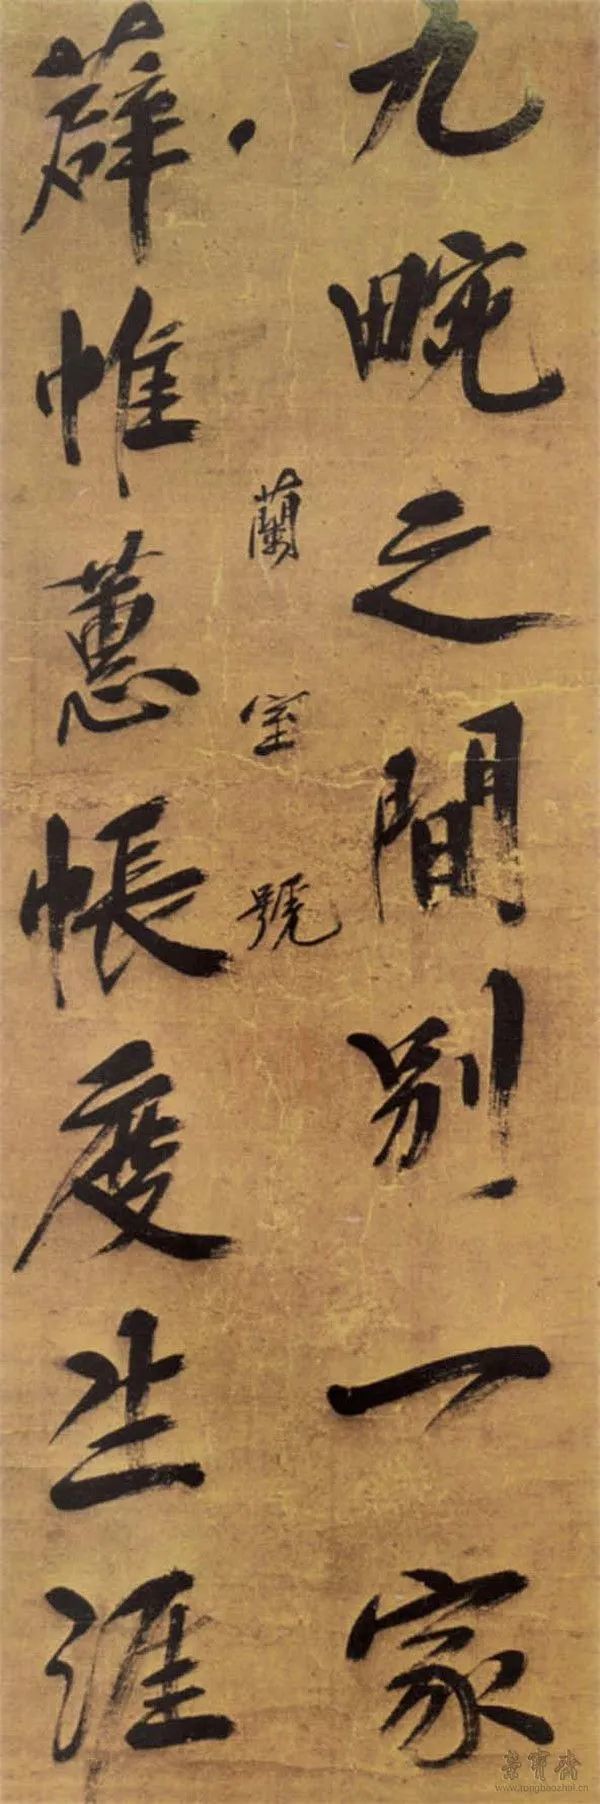 九畹之間別一家
蘭室號
薜帷蕙帳度生涯
榮寶齋
www.rongbaozhai.cn